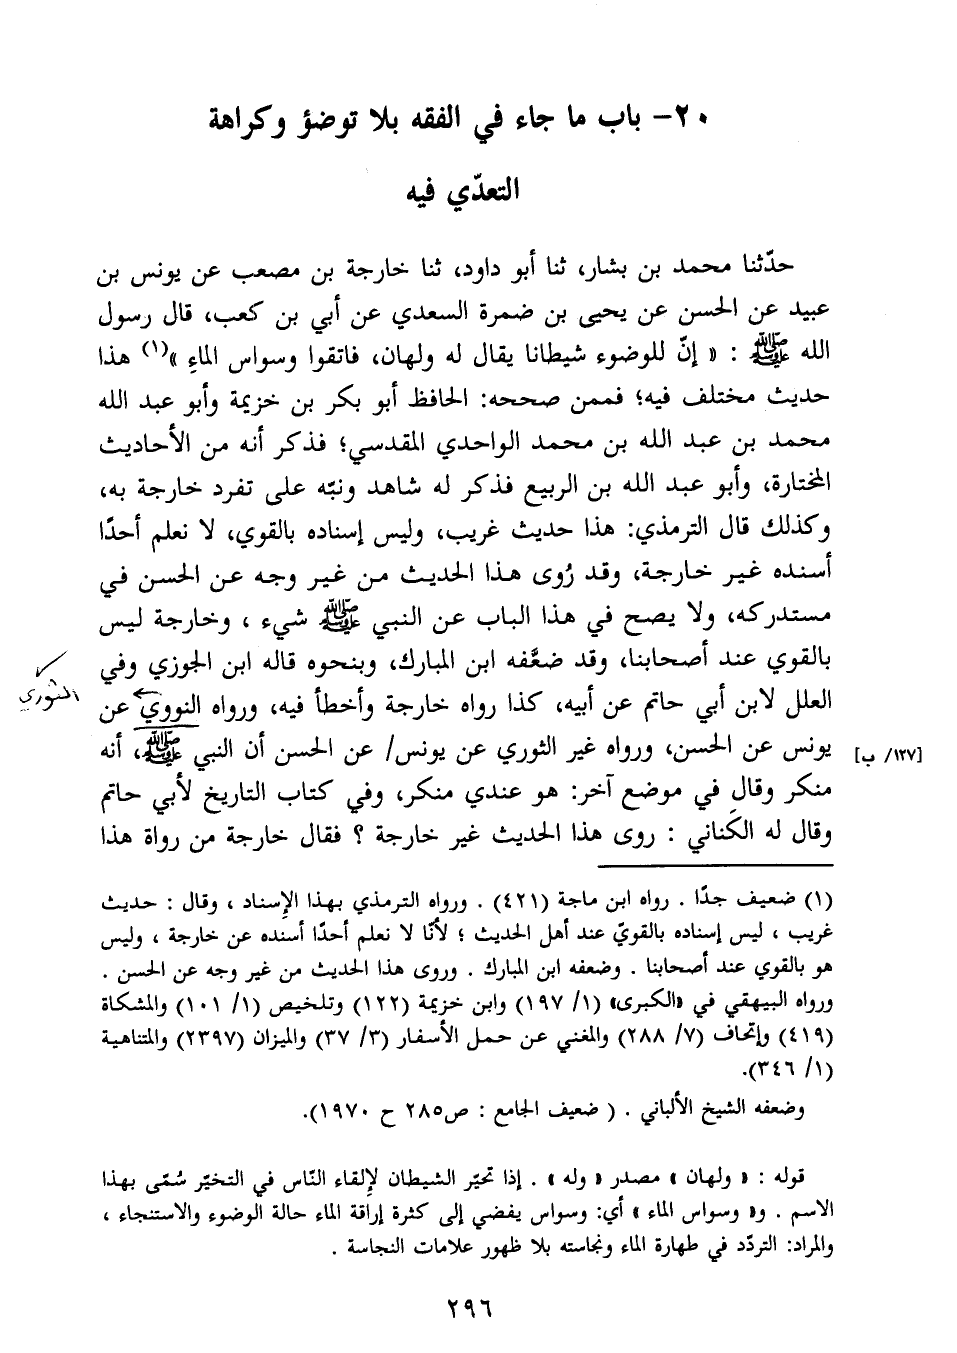 ٢٠- باب ما جاء في الفقه بلا توضؤ وكراهة
التعدّي فيه
حدّثنا محمد بن بشار، ثنا أبو داود، ثنا خارجة بن مصعب عن يونس بن
عبيد عن الحسن عن يحيى بن ضمرة السعدي عن أبي بن كعب، قال رسول
الله ﷺ : « إنّ للوضوء شيطانا يقال له ولهان، فاتقوا وسواس الماءِ »(١) هذا
حديث مختلف فيه؛ فممن صححه: الحافظ أبو بكر بن خزيمة وأبو عبد الله
محمد بن عبد الله بن محمد الواحدي المقدسي؛ فذكر أنه من الأحاديث
المختارة، وأبو عبد الله بن الربيع فذكر له شاهد ونبّه على تفرد خارجة به،
وكذلك قال الترمذي: هذا حديث غريب، وليس إسناده بالقوي، لا نعلم أحدًا
أسنده غير خارجة، وقد رُوى هذا الحديث من غير وجه عن الحسن في
مستدركه، ولا يصح في هذا الباب عن النبي ﷺ شيء ، وخارجة ليس
بالقوي عند أصحابنا، وقد ضعَّفه ابن المبارك، وبنحوه قاله ابن الجوزي وفي
العلل لابن أبي حاتم عن أبيه، كذا رواه خارجة وأخطأ فيه، ورواه النووي عن
الثوري
يونس عن الحسن، ورواه غير الثوري عن يونس/ عن الحسن أن النبي ﷺ، أنه
[١٣٧/ ب]
منكر وقال في موضع آخر: هو عندي منكر، وفي كتاب التاريخ لأبي حاتم
وقال له الكناني : روى هذا الحديث غير خارجة ؟ فقال خارجة من رواة هذا
(١) ضعيف جدًا . رواه ابن ماجة (٤٢١) . ورواه الترمذي بهذا الإسناد ، وقال : حديث
غريب ، ليس إسناده بالقويّ عند أهل الحديث ؛ لأنّا لا نعلم أحدًا أسنده عن خارجة ، وليس
هو بالقوي عند أصحابنا . وضعفه ابن المبارك . وروى هذا الحديث من غير وجه عن الحسن .
ورواه البيهقي في «الكبرى» (١/ ١٩٧) وابن خزيمة (١٢٢) وتلخيص (١/ ١٠١) والمشكاة
(٤١٩) وإتحاف (٧/ ٢٨٨) والمغني عن حمل الأسفار (٣/ ٣٧) والميزان (٢٣٩٧) والمتناهية
(١/ ٣٤٦).
وضعفه الشيخ الألباني . ( ضعيف الجامع : ص٢٨٥ ح ١٩٧٠).
قوله : « ولهان » مصدر « وله » . إذا تحيّر الشيطان لإلقاء النّاس في التخيّر سُمّى بهذا
الاسم . و« وسواس الماء » أي: وسواس يفضي إلى كثرة إراقة الماء حالة الوضوء والاستنجاء ،
والمراد: التردّد في طهارة الماء ونجاسته بلا ظهور علامات النجاسة .
٢٩٦